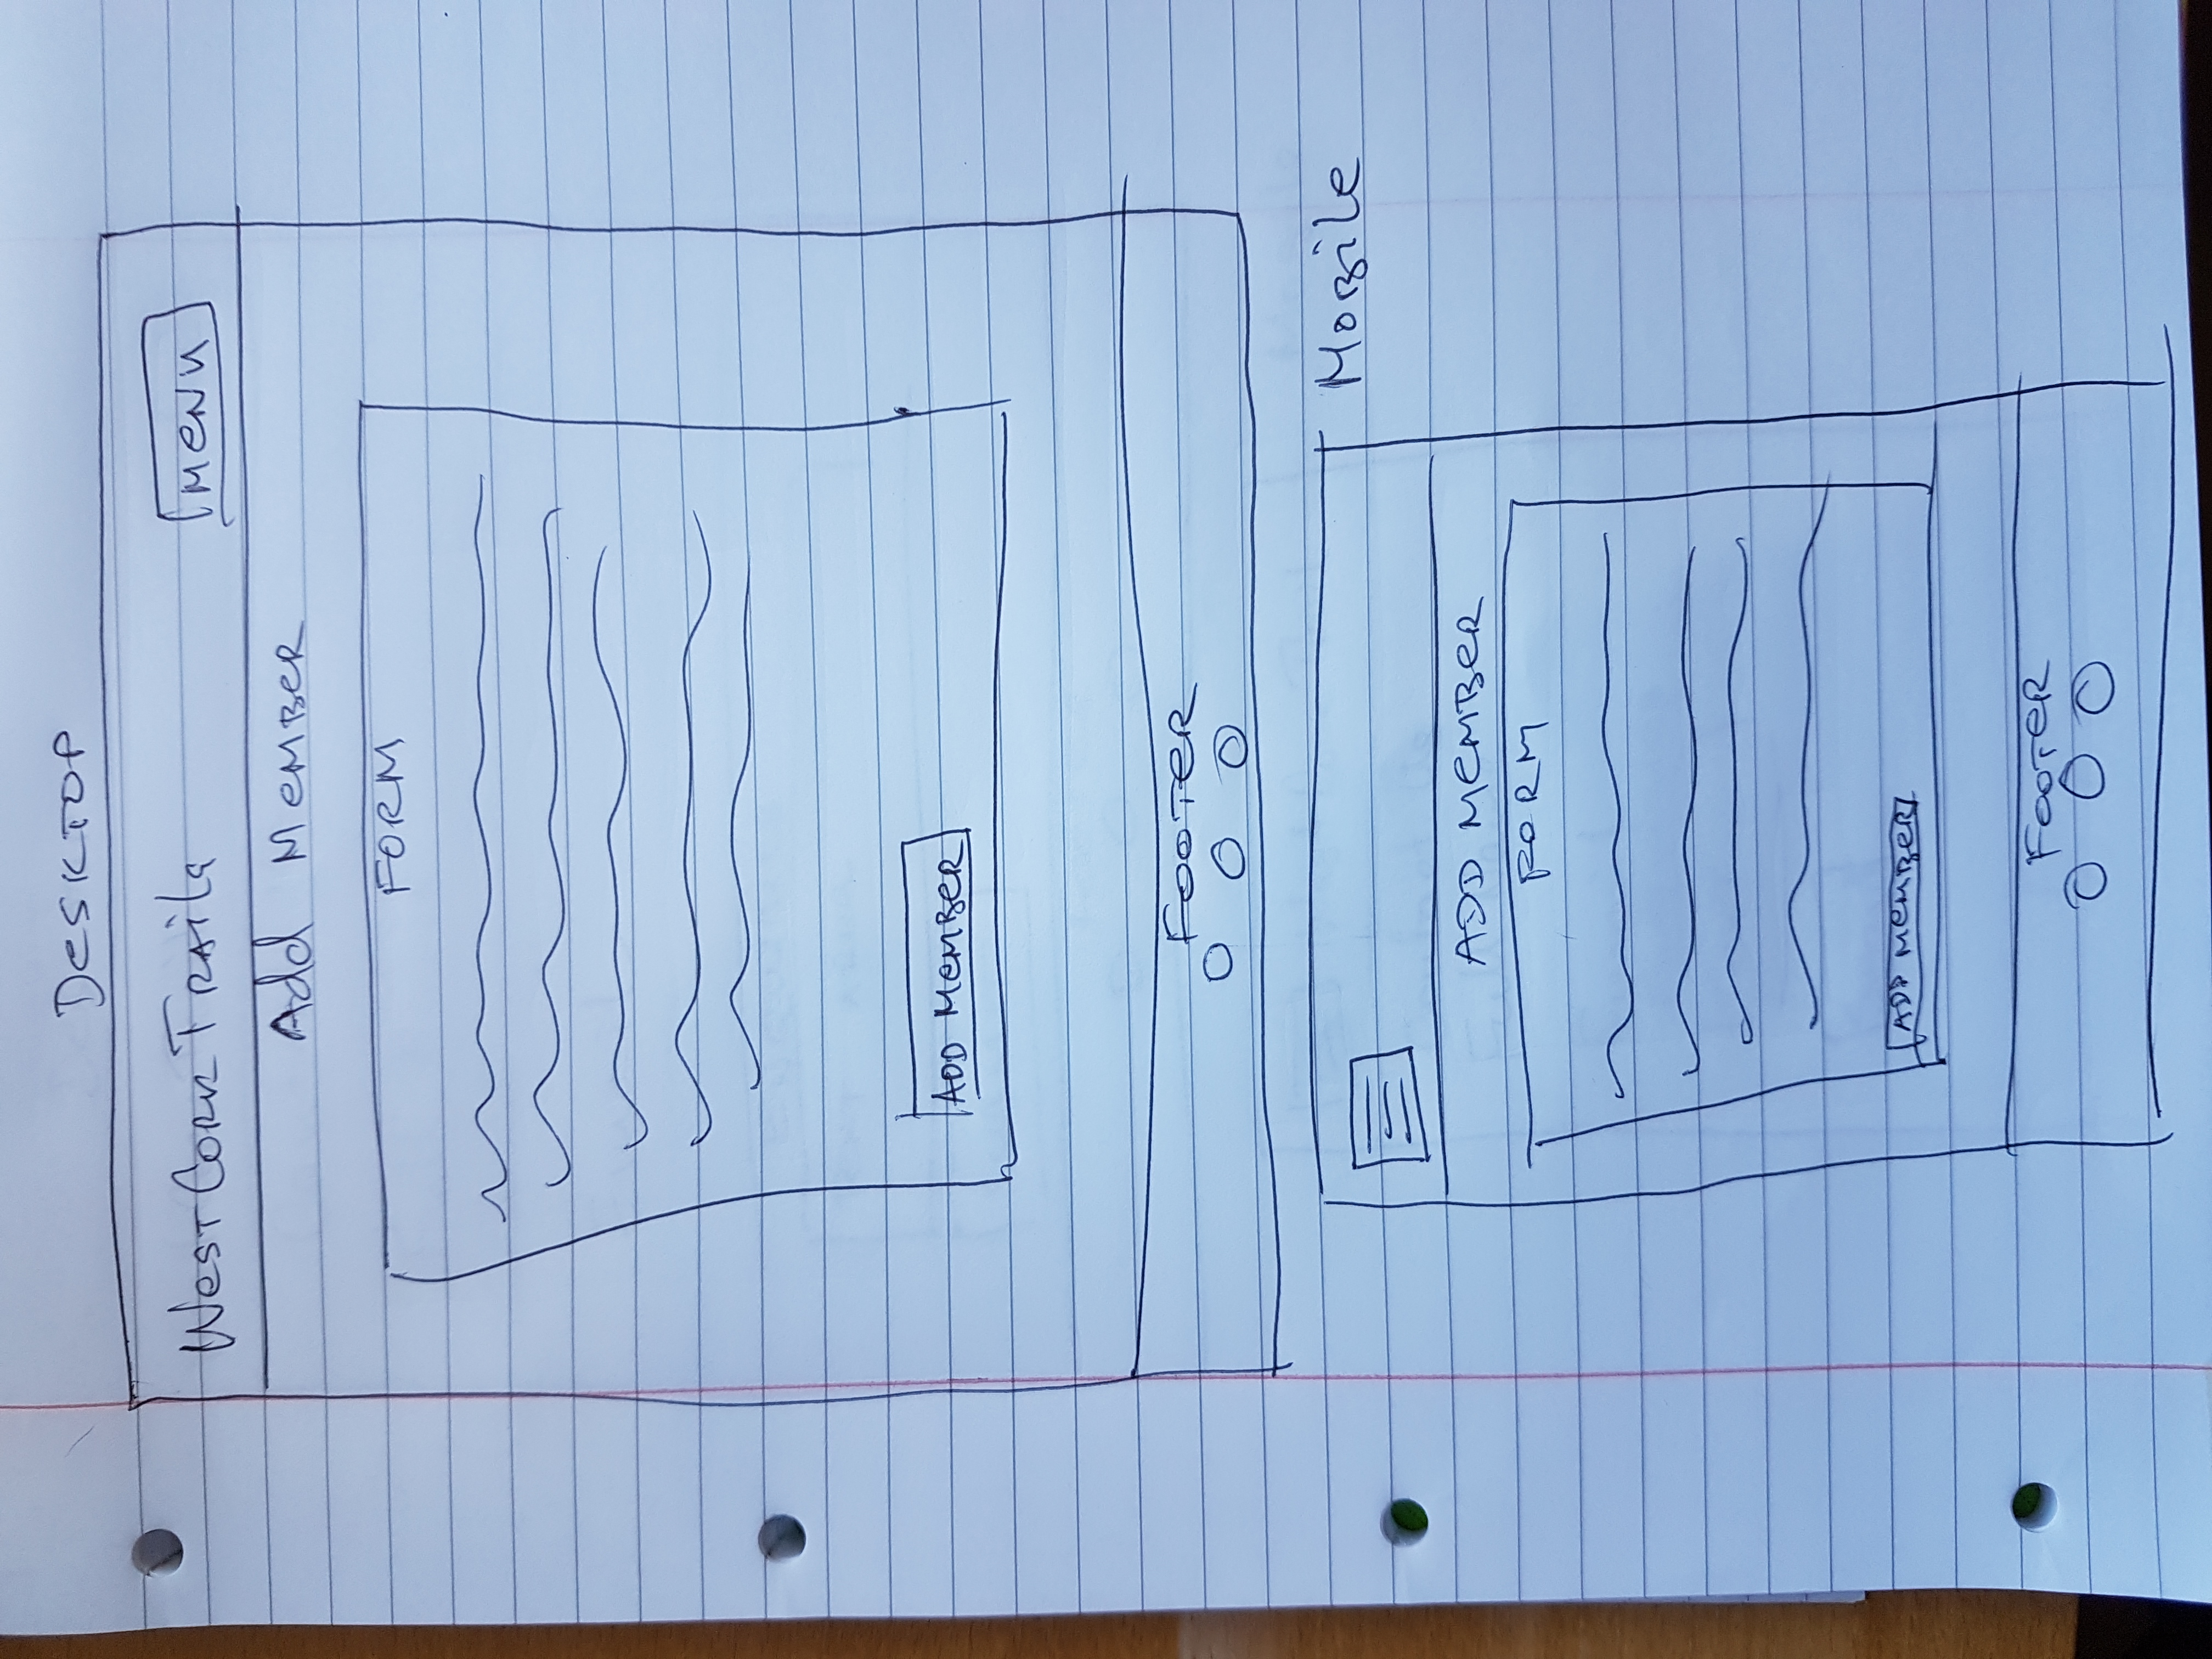 Desktop
West Cork Trails
Menu
Add Member
Form
Add Member
Footer
Mobile
Add Member
Form
Add Member
Footer